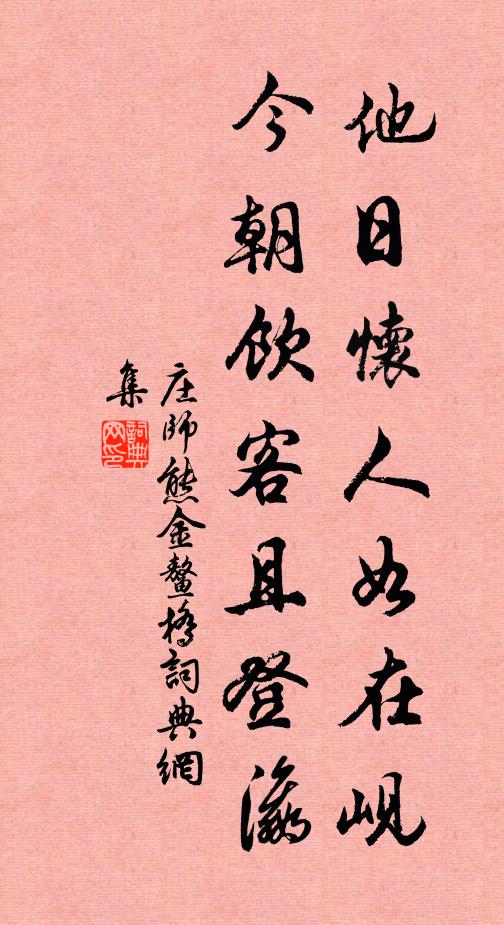 他日懷人如在峴
今朝飲客且登瀛
庄師熊金鰲橋詞典網
集
詞典
网印